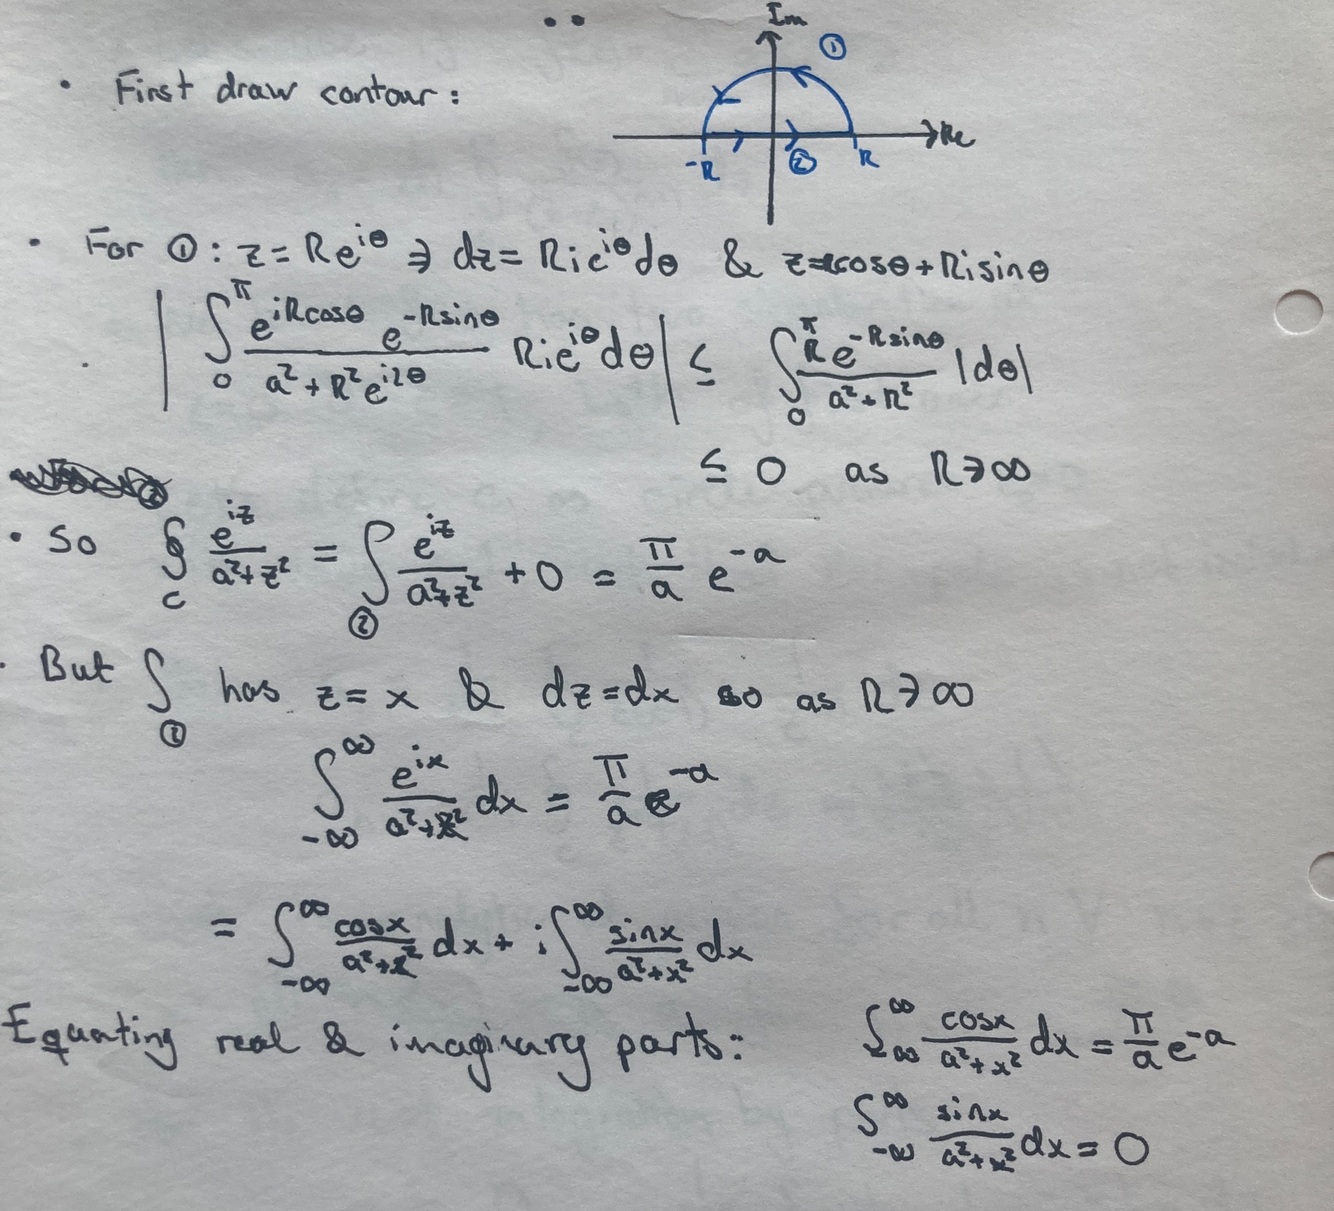 Im
①
• First draw contour:
Re
-R ② R
• For ①: z = Re^{iθ} ⇒ dz = Rie^{iθ}dθ & z=Rcosθ + Risinθ
| ∫_0^π \frac{e^{iRcosθ} e^{-Rsinθ}}{a² + R²e^{i2θ}} Rie^{iθ}dθ | ≤ ∫_0^π \frac{Re^{-Rsinθ}}{a² + R²} |dθ|
≤ 0 as R→∞
• So ∮_C \frac{e^{iz}}{a²+z²} = ∫_② \frac{e^{iz}}{a²+z²} + 0 = \frac{π}{a} e^{-a}
• But ∫_② has z = x & dz = dx so as R→∞
∫_{-∞}^{∞} \frac{e^{ix}}{a²+x²} dx = \frac{π}{a} e^{-a}
= ∫_{-∞}^{∞} \frac{cosx}{a²+x²} dx + i∫_{-∞}^{∞} \frac{sinx}{a²+x²} dx
Equating real & imaginary parts: ∫_{-∞}^{∞} \frac{cosx}{a²+x²} dx = \frac{π}{a} e^{-a}
∫_{-∞}^{∞} \frac{sinx}{a²+x²} dx = 0